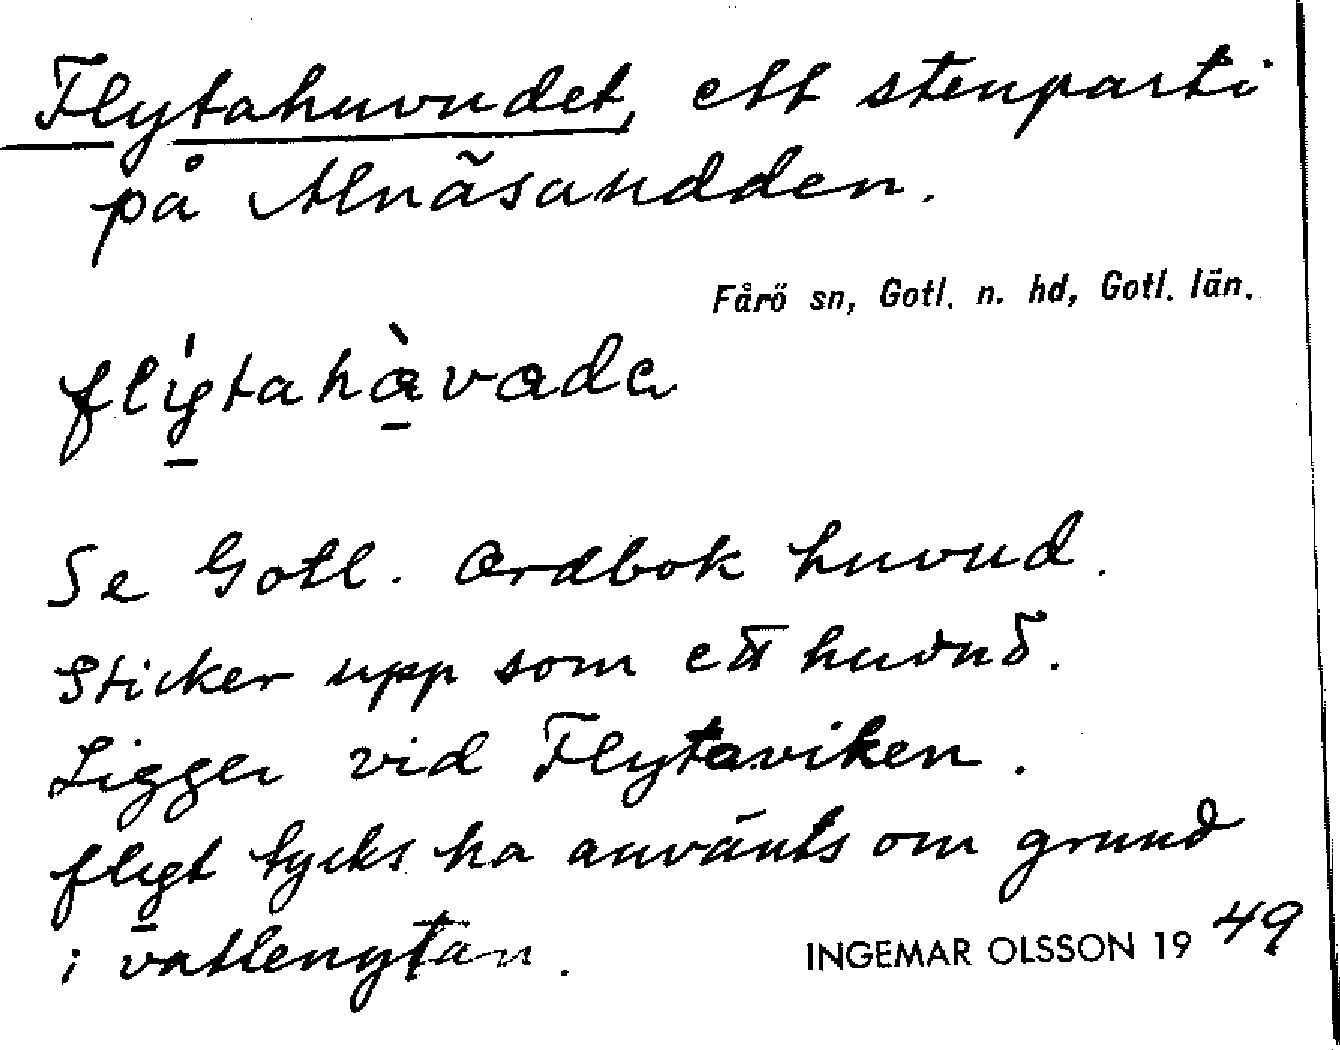 Flytahuvudet, ett stenparti
på Alnäsaudden.
Fårö sn, Gotl. n. hd, Gotl. län.
Se Gotl. Ordbok huvud.
Sticker upp som ett huvud.
Ligger vid Flytaviken.
flyt tycks ha använts om grund
i vattenytan.
INGEMAR OLSSON 19 49